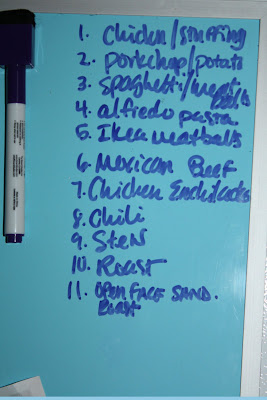 1. Chicken/stuffing
2. porkchop/potato
3. Spaghetti/meat
balls
4. alfredo pasta
5. Ikea meatballs
6. Mexican Beef
7. Chicken Enchiladas
8. Chili
9. Stew
10. Roast
11. OPEN FACE SAND.
Roast